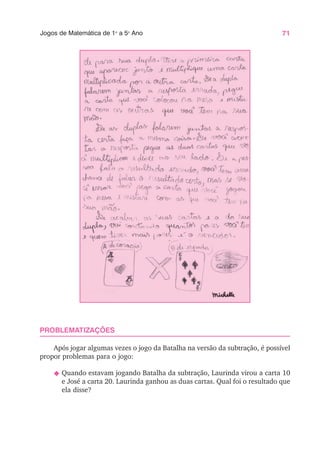 Jogos de Matemática de 1º a 5º Ano 71
de para sua dupla. Tire a primeira carta
que aparecer junto e multiplique uma carta
multiplicada por a outra carta. Se a dupla
falarem juntas a resposta errada, pegue
a carta que você colocou na mesa e mistu
re com as outras que você tem na sua
mão.
Se as duplas falarem juntas a respos-
ta certa faça a mesma coisa. Se você acer
tar a resposta pegue as duas cartas que vo
cê multiplicou e deixe ao seu lado. Se a pes
soa fala o resultado errado, você tem uma
chance de falar o resultado certo, mas se vo
cê errar você pega a carta que você jogou
na mesa e mistura com as que você tem na
sua mão.
Se acabar as suas cartas e a da sua
dupla, vão contando quantos pares você tem
e quem tiver mais pares é o vencedor.
(A de coração) (6 de espada)
A
6
Michelle
PROBLEMATIZAÇÕES
Após jogar algumas vezes o jogo da Batalha na versão da subtração, é possível
propor problemas para o jogo:
Quando estavam jogando Batalha da subtração, Laurinda virou a carta 10
e José a carta 20. Laurinda ganhou as duas cartas. Qual foi o resultado que
ela disse?